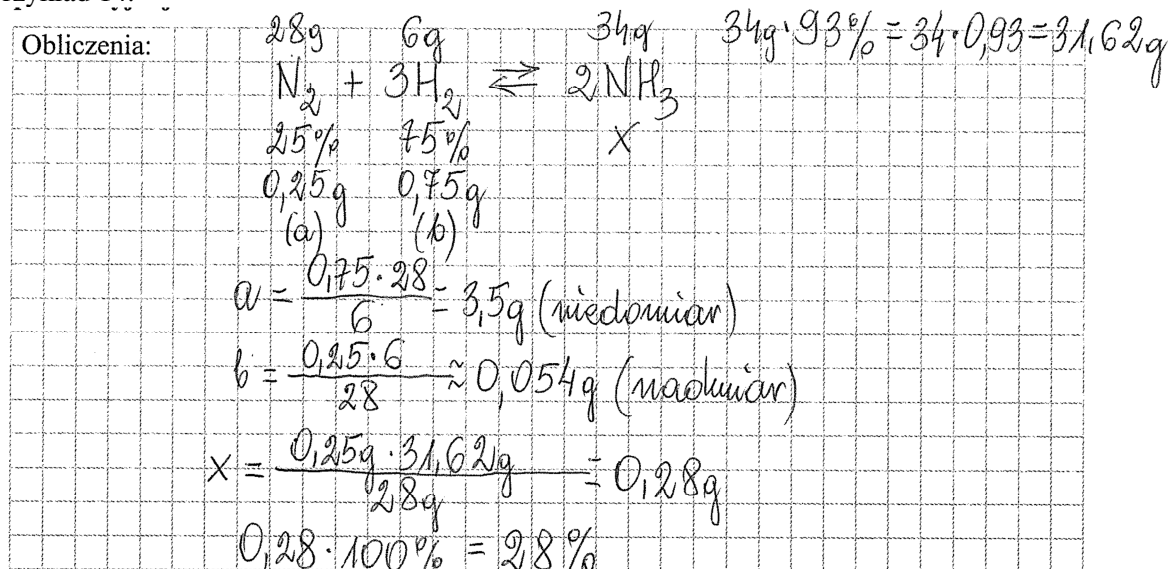 Obliczenia:
28g 6g 34g 34g · 93% = 34 · 0,93 = 31,62g
N₂ + 3H₂ ⇄ 2NH₃
25% 75% X
0,25g 0,75g
(a) (b)
a = \frac{0,75 · 28}{6} = 3,5g (niedomiar)
b = \frac{0,25 · 6}{28} ≈ 0,054g (nadmiar)
X = \frac{0,25g · 31,62g}{28g} = 0,28g
0,28 · 100% = 28%